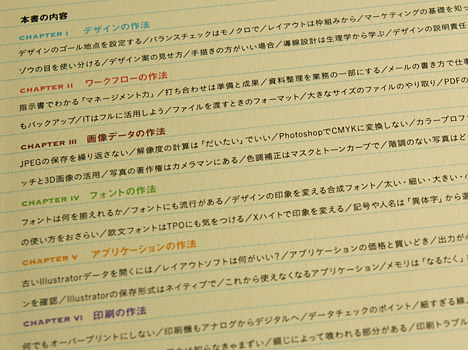 本書の内容
CHAPTER I デザインの作法
デザインのゴール地点を設定する／バランスチェックはモノクロで／レイアウトは枠組みから／マーケティングの基礎を知っ
ゾウの目を使い分ける／デザイン案の見せ方／手描きの方がいい場合／導線設計は生理学から学ぶ／デザインの説明責任
CHAPTER II ワークフローの作法
指示書でわかる「マネージメント力」／打ち合わせは準備と成果／資料整理を業務の一部にする／メールの書き方で仕事
もバックアップ／ITはフルに活用しよう／ファイルを渡すときのフォーマット／大きなサイズのファイルのやり取り／PDFの
CHAPTER III 画像データの作法
JPEGの保存を繰り返さない／解像度の計算は「だいたい」でいい／PhotoshopでCMYKに変換しない／カラープロフ
ッチと3D画像の活用／写真の著作権はカメラマンにある／色調補正はマスクとトーンカーブで／階調のない写真はど
CHAPTER IV フォントの作法
フォントは何を揃えれるか／フォントにも流行がある／デザインの印象を変える合成フォント／太い・細い・大きい・小
の使い方をおさらい／欧文フォントはTPOにも気をつける／Xハイトで印象を変える／記号や人名は「異体字」から選
CHAPTER V アプリケーションの作法
古いIllustratorデータを開くには／レイアウトソフトは何がいい？／アプリケーションの価格と買いどき／出力が必
ンを確認／Illustratorの保存形式はネイティブで／これから使えなくなるアプリケーション／メモリは「なるたく」
CHAPTER VI 印刷の作法
何でもオーバープリントにしない／印刷機もアナログからデジタルへ／データチェックのポイント／細すぎる線
は知らなきゃまずい／綴じによって喰われる部分がある／印刷トラブル